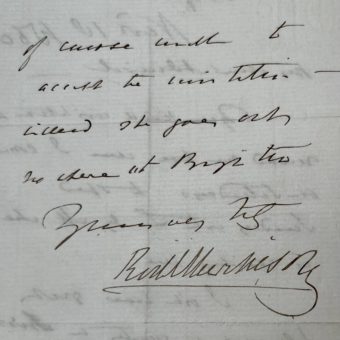 of course unable to
accept the invitation —
indeed she goes out
no where at Brighton
Yours very
Rod I Murchison